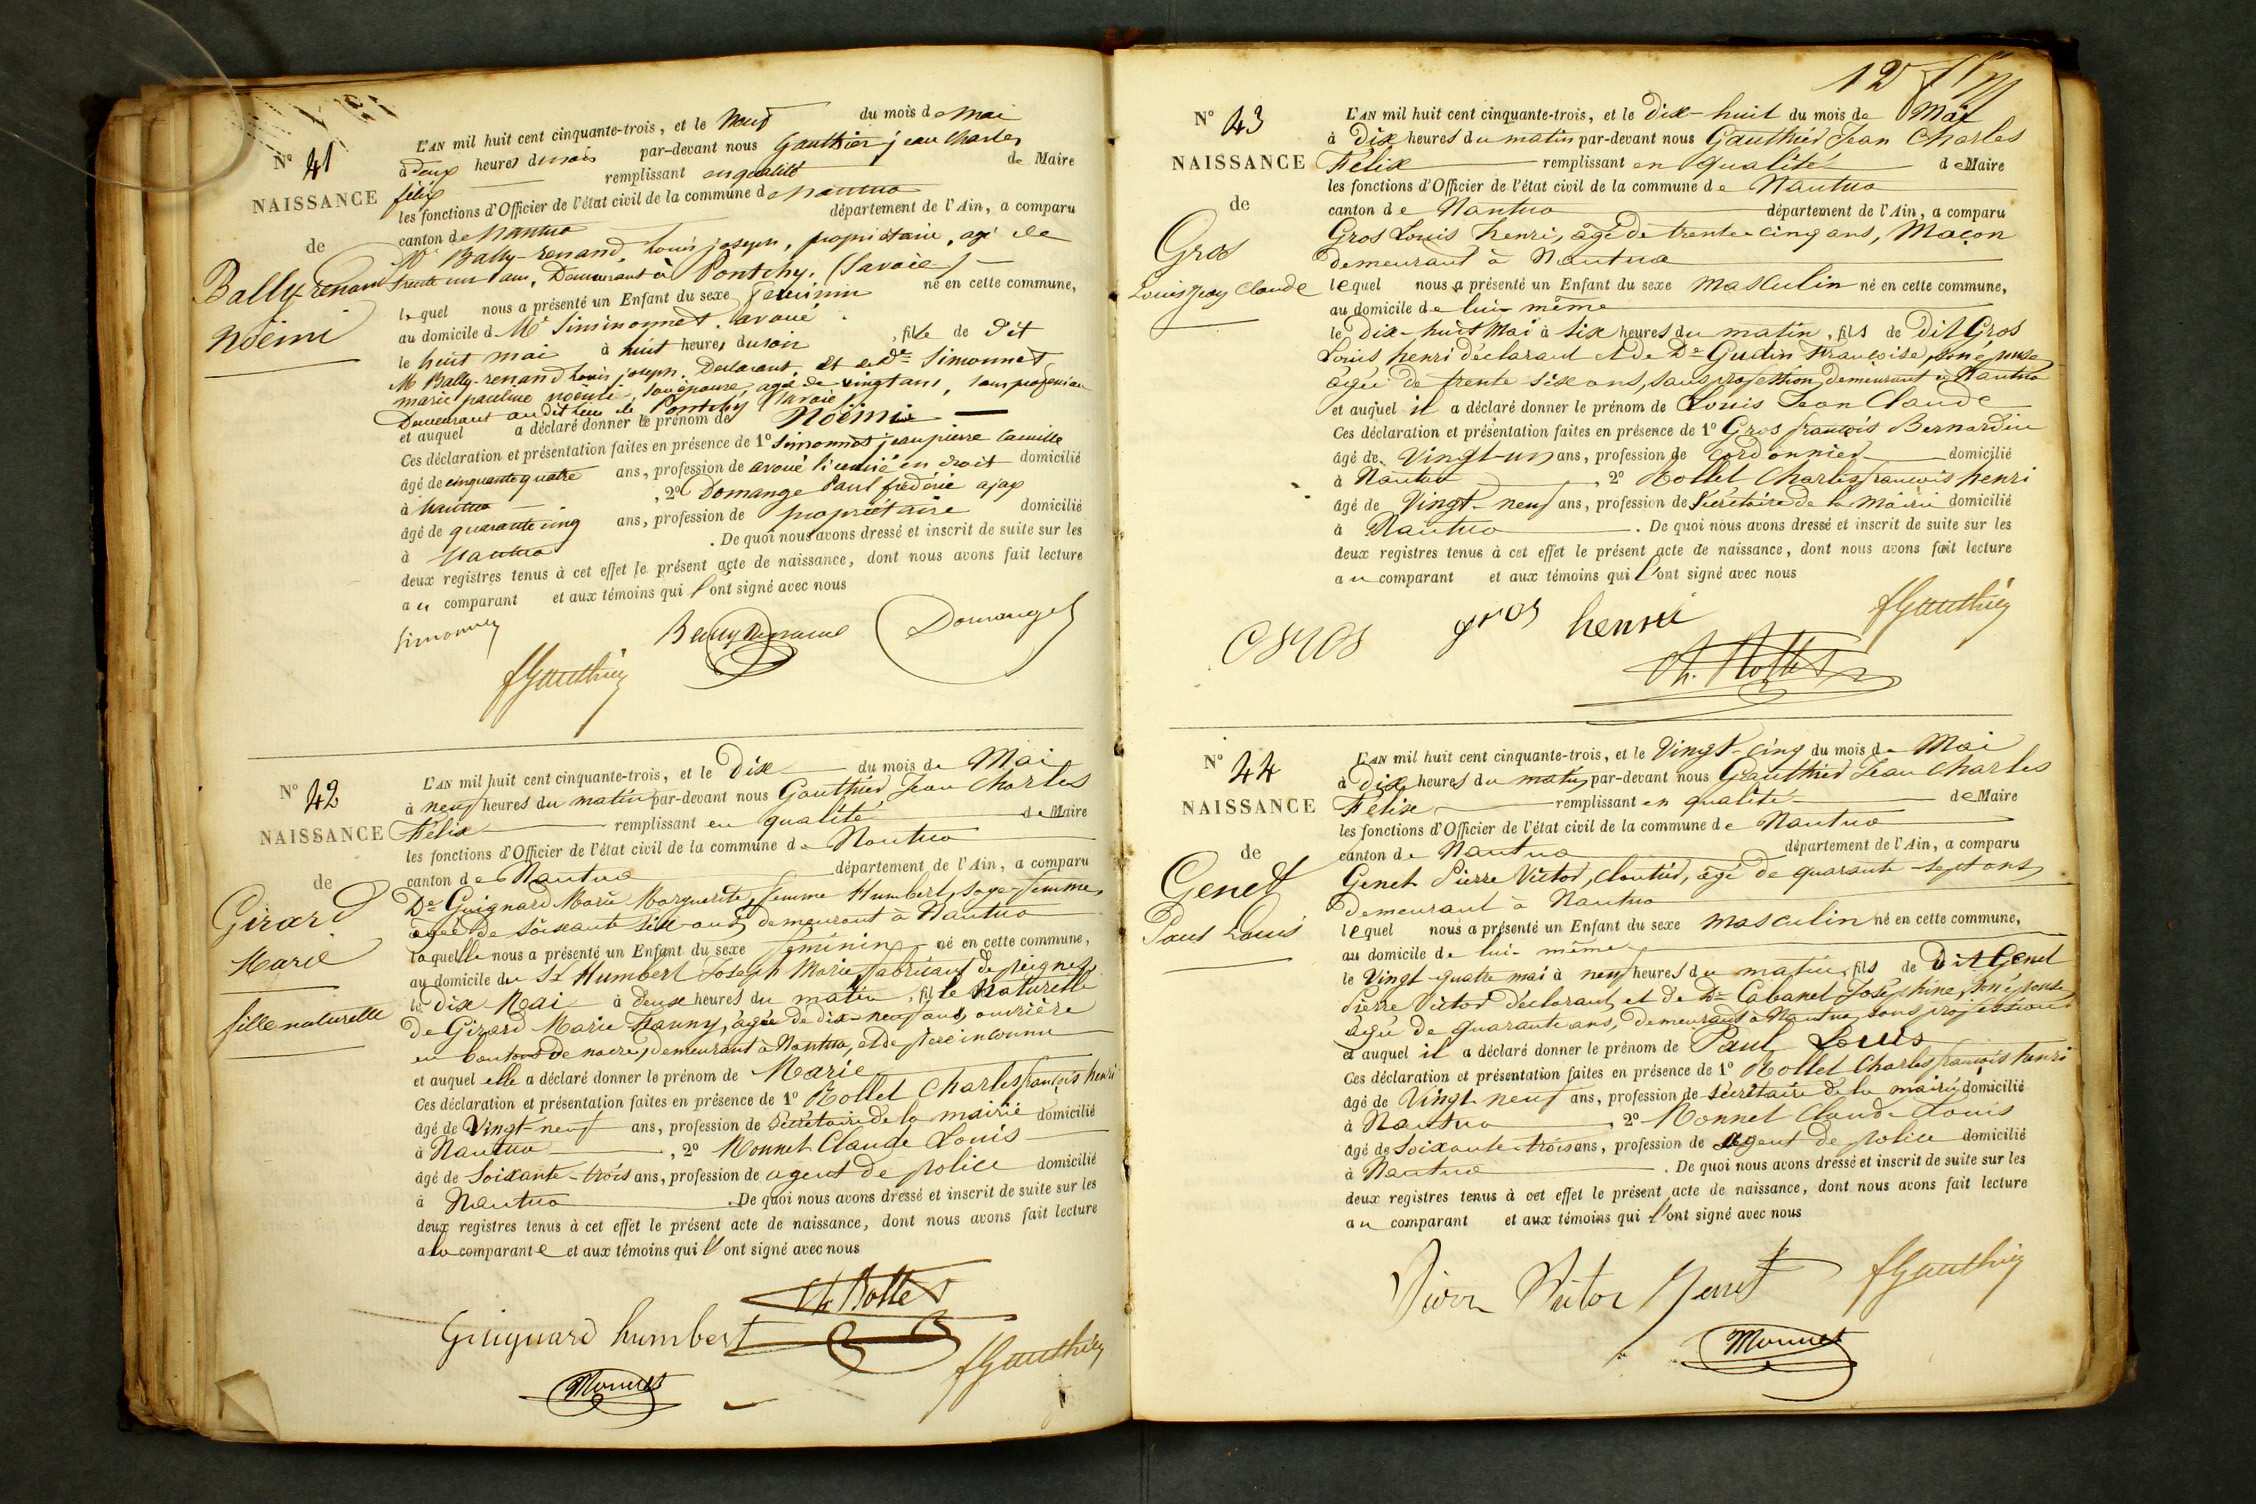 N° 41
NAISSANCE
de
Bally-renand
Noëmi
L'AN mil huit cent cinquante-trois, et le neuf du mois de mai
à deux heures du soir par-devant nous Gauthier jean Charles
félix remplissant en qualité de Maire
les fonctions d'Officier de l'état civil de la commune de nantua
canton de nantua département de l'Ain, a comparu
Mr Bally-renand, Louis joseph, propriétaire, agé de
trente un ans, Demeurant à Pontchy, (Savoie)
lequel nous a présenté un Enfant du sexe féminin né en cette commune,
au domicile de Mr Simonnet avoué
le huit mai à huit heures du soir, fille de dit
Mr Bally-renand Louis joseph, Declarant, et de de Simonnet
marie pauline noëmi, son épouse, agée de vingt ans, sans profession
Demeurant au dit lieu de Pontchy (Savoie)
et auquel a déclaré donner le prénom de Noëmi
Ces déclaration et présentation faites en présence de 1° Simonnet jean pierre Camille
âgé de cinquante quatre ans, profession de avoué licencié en droit domicilié
à Nantua, 2° Domange Paul frédéric ajax
âgé de quarante cinq ans, profession de propriétaire domicilié
à Nantua. De quoi nous avons dressé et inscrit de suite sur les
deux registres tenus à cet effet le présent acte de naissance, dont nous avons fait lecture
au comparant et aux témoins qui l'ont signé avec nous
Simonnet Bally Renand Domange
fGauthier
N° 42
NAISSANCE
de
Girard
Marie
fille naturelle
L'AN mil huit cent cinquante-trois, et le Dix du mois de Mai
à neuf heures du matin par-devant nous Gauthier Jean Charles
Félix remplissant en qualité de Maire
les fonctions d'Officier de l'état civil de la commune de Nantua
canton de Nantua département de l'Ain, a comparu
De Guignard Marie Marguerite, femme Humbert, sage-femme,
agée de soixante six ans, demeurant à Nantua
laquelle nous a présenté un Enfant du sexe féminin né en cette commune,
au domicile du Sr Humbert Joseph Marie, fabricant de peignes,
le dix Mai à deux heures du matin, fille Naturelle
de Girard Marie Fanny, âgée de dix-neuf ans, ouvrière
en boutons de nacre, demeurant à Nantua, et de père inconnu
et auquel elle a déclaré donner le prénom de Marie
Ces déclaration et présentation faites en présence de 1° Rollet Charles françois henri
âgé de Vingt neuf ans, profession de Secrétaire de la mairie domicilié
à Nantua, 2° Monnet Claude Louis
âgé de Soixante-trois ans, profession de agent de police domicilié
à Nantua. De quoi nous avons dressé et inscrit de suite sur les
deux registres tenus à cet effet le présent acte de naissance, dont nous avons fait lecture
a la comparante et aux témoins qui l'ont signé avec nous
Ch. Rollet
Guignard humbert
fGauthier
Monnet
12
N° 43
NAISSANCE
de
Gros
Louis Jean Claude
L'AN mil huit cent cinquante-trois, et le Dix-huit du mois de Mai
à Dix heures du matin par-devant nous Gauthier Jean Charles
Félix remplissant en qualité de Maire
les fonctions d'Officier de l'état civil de la commune de Nantua
canton de Nantua département de l'Ain, a comparu
Gros Louis henri, âgé de trente-cinq ans, Maçon
demeurant à Nantua
lequel nous a présenté un Enfant du sexe Masculin né en cette commune,
au domicile de lui-même
le dix-huit Mai à six heures du matin, fils de dit Gros
Louis henri déclarant et de De Gudin Françoise, son épouse
âgée de trente-six ans, sans profession, demeurant à Nantua
et auquel il a déclaré donner le prénom de Louis Jean Claude
Ces déclaration et présentation faites en présence de 1° Gros françois Bernardin
âgé de Vingt-un ans, profession de Cordonnier domicilié
à Nantua, 2° Rollet Charles françois henri
âgé de Vingt-neuf ans, profession de Secrétaire de la Mairie domicilié
à Nantua. De quoi nous avons dressé et inscrit de suite sur les
deux registres tenus à cet effet le présent acte de naissance, dont nous avons fait lecture
au comparant et aux témoins qui l'ont signé avec nous
Gros gros henri fGauthier
Ch. Rollet
N° 44
NAISSANCE
de
Genet
Paul Louis
L'AN mil huit cent cinquante-trois, et le Vingt-cinq du mois de Mai
à Dix heures du matin par-devant nous Gauthier Jean Charles
Félix remplissant en qualité de Maire
les fonctions d'Officier de l'état civil de la commune de Nantua
canton de Nantua département de l'Ain, a comparu
Genet Pierre Victor, cloutier, âgé de quarante-sept ans
demeurant à Nantua
lequel nous a présenté un Enfant du sexe masculin né en cette commune,
au domicile de lui-même
le Vingt-quatre mai à neuf heures du matin, fils de Dit Genet
Pierre Victor déclarant, et de De Cabanet Joséphine, son épouse
âgée de quarante ans, demeurant à Nantua, sans profession
et auquel il a déclaré donner le prénom de Paul Louis
Ces déclaration et présentation faites en présence de 1° Rollet Charles françois henri
âgé de Vingt-neuf ans, profession de secrétaire de la mairie domicilié
à Nantua, 2° Monnet Claude Louis
âgé de Soixante-trois ans, profession de agent de police domicilié
à Nantua. De quoi nous avons dressé et inscrit de suite sur les
deux registres tenus à cet effet le présent acte de naissance, dont nous avons fait lecture
au comparant et aux témoins qui l'ont signé avec nous
Pierre Victor Genet fGauthier
Monnet